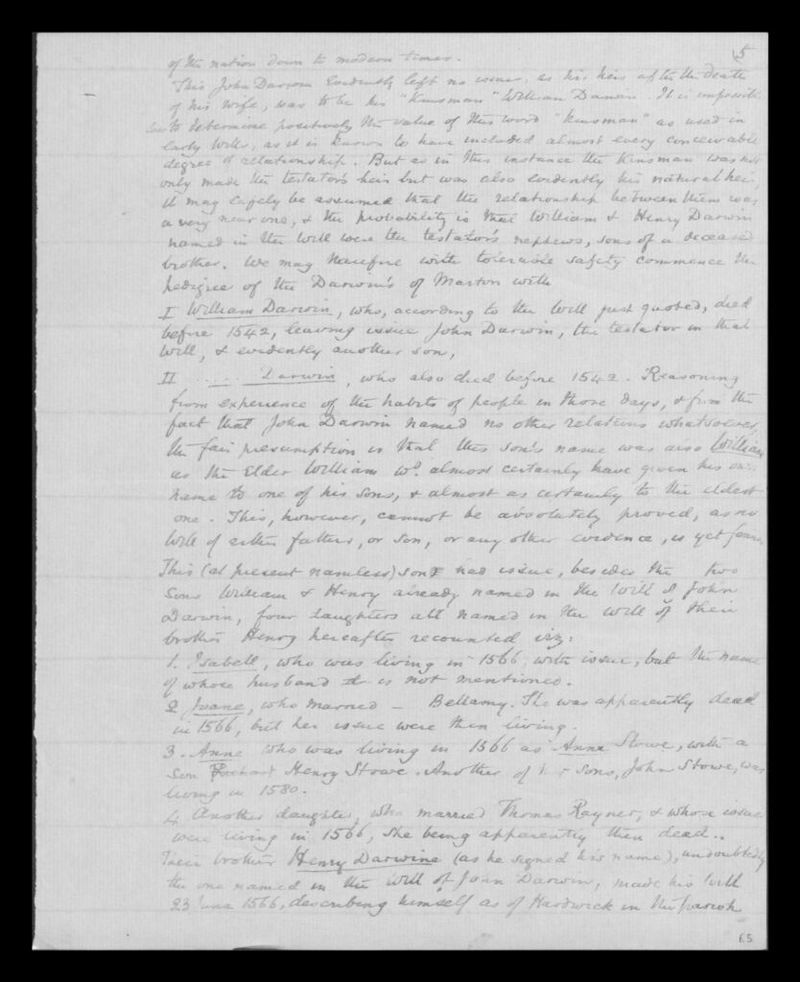 5
of the nation down to modern times.
This John Darwin evidently left no issue, as his heir after the death
of his wife, was to be his "Kinsman" William Darwin. It is impossible
to determine positively the value of this word "Kinsman" as used in
early Wills, as it is known to have included almost every conceivable
degree of relationship. But as in this instance the Kinsman was not
only made the testator's heir but was also evidently his natural heir,
it may safely be assumed that the relationship between them was
a very near one, & the probability is that William & Henry Darwin
named in the Will were the testator's nephews, sons of a deceased
brother. We may therefore with tolerable safety commence the
Pedigree of the Darwin's of Marton with
I William Darwin, who, according to the Will just quoted, died
before 1542, leaving issue John Darwin, the testator in that
Will, & evidently another son,
II ...... Darwin, who also died before 1542. Reasoning
from experience of the habits of people in those days, & from the
fact that John Darwin named no other relations whatsoever,
the fair presumption is that this son's name was also William
as the Elder William wd. almost certainly have given his own
name to one of his sons, & almost as certainly to the eldest
one. This, however, cannot be absolutely proved, as no
Will of either father, or son, or any other evidence, is yet found.
This (at present nameless) son had issue, besides the two
sons William & Henry already named in the Will of John
Darwin, four daughters all named in the Will of their
brother Henry hereafter recounted viz:
1. Isabell, who was living in 1566, with issue, but the name
of whose husband is not mentioned.
2 Joane, who married — Bellamy. She was apparently dead
in 1566, but her issue were then living.
3. Anne who was living in 1566 as Anne Stowe, with a
son Richard Henry Stowe. Another of her sons, John Stowe, was
living in 1580.
4 Another daughter, who married Thomas Rayner, & whose issue
were living in 1566, she being apparently then dead..
Their brother Henry Darwine (as he signed his name), undoubtedly
the one named in the Will of John Darwin, made his Will
23 June 1566, describing himself as of Hardwick in the parish
65